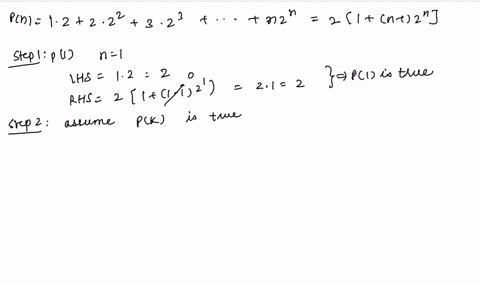 P(n) = 1·2 + 2·2² + 3·2³ + ··· + n2ⁿ = 2 [1 + (n-1)2ⁿ]
Step 1: p(1) n=1
LHS = 1·2 = 2
RHS = 2 [1 + (1-1)2¹) = 2·1 = 2 } ⇒ P(1) is true
0
Step 2: assume P(K) is true